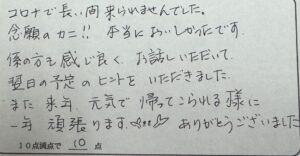 コロナで長い間来られませんでした。
念願のカニ!! 本当においしかったです。
係の方も感じ良く、お話しいただいて、
翌日の予定のヒントをいただきました。
また来年、元気で帰ってこられる様に
一年頑張ります。ありがとうございました
10点満点で 10 点